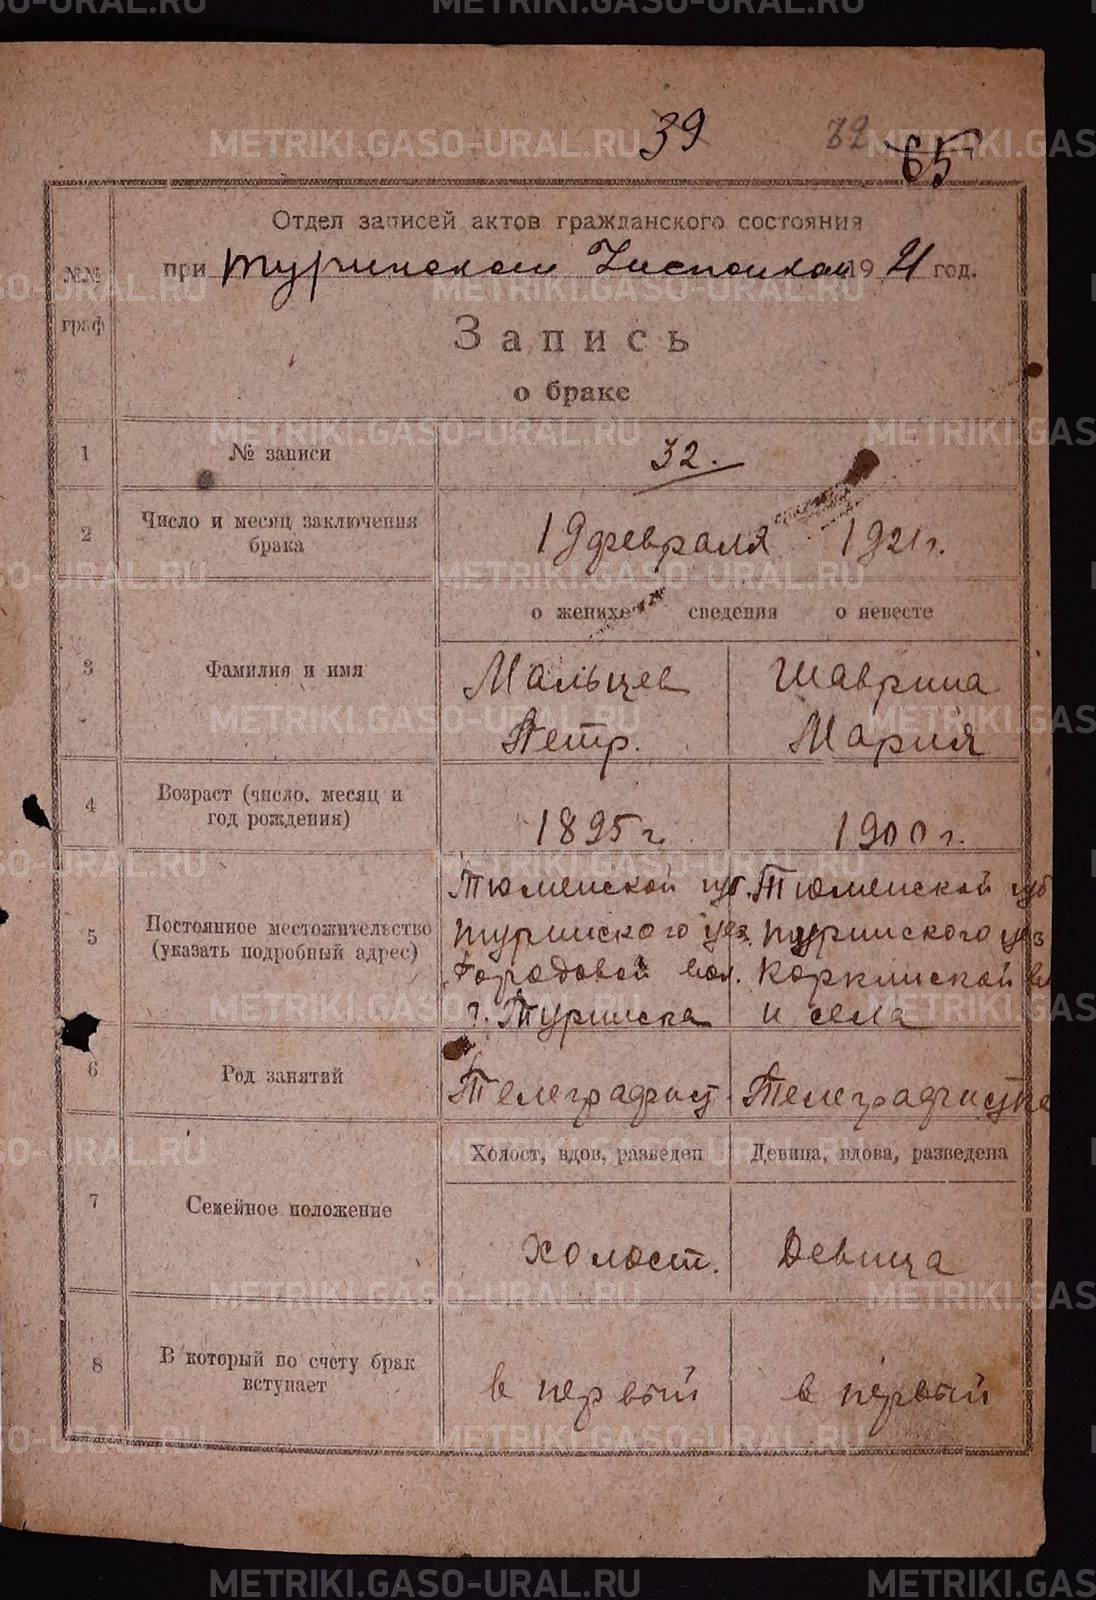 METRIKI.GASO-URAL.RU
39
32
65
Отдел записей актов гражданского состояния
при Туринском Исполкоме 1921 год.
№№ граф
Запись
о браке
1 № записи 32.
2 Число и месяц заключения брака 19 февраля 1921 г.
о женихе сведения о невесте
3 Фамилия и имя
Мальцев Шаврина
Петр. Мария
4 Возраст (число, месяц и год рождения) 1895 г. 1900 г.
5 Постоянное местожительство (указать подробный адрес)
Тюменской губ. Тюменской губ
Туринского уез. Туринского уез
Городовой вол. Коркинской вл
г. Туринска и села
6 Род занятий Телеграфист Телеграфистка
Холост, вдов, разведен Девица, вдова, разведена
7 Семейное положение холост. Девица
8 В который по счету брак вступает в первый в первый